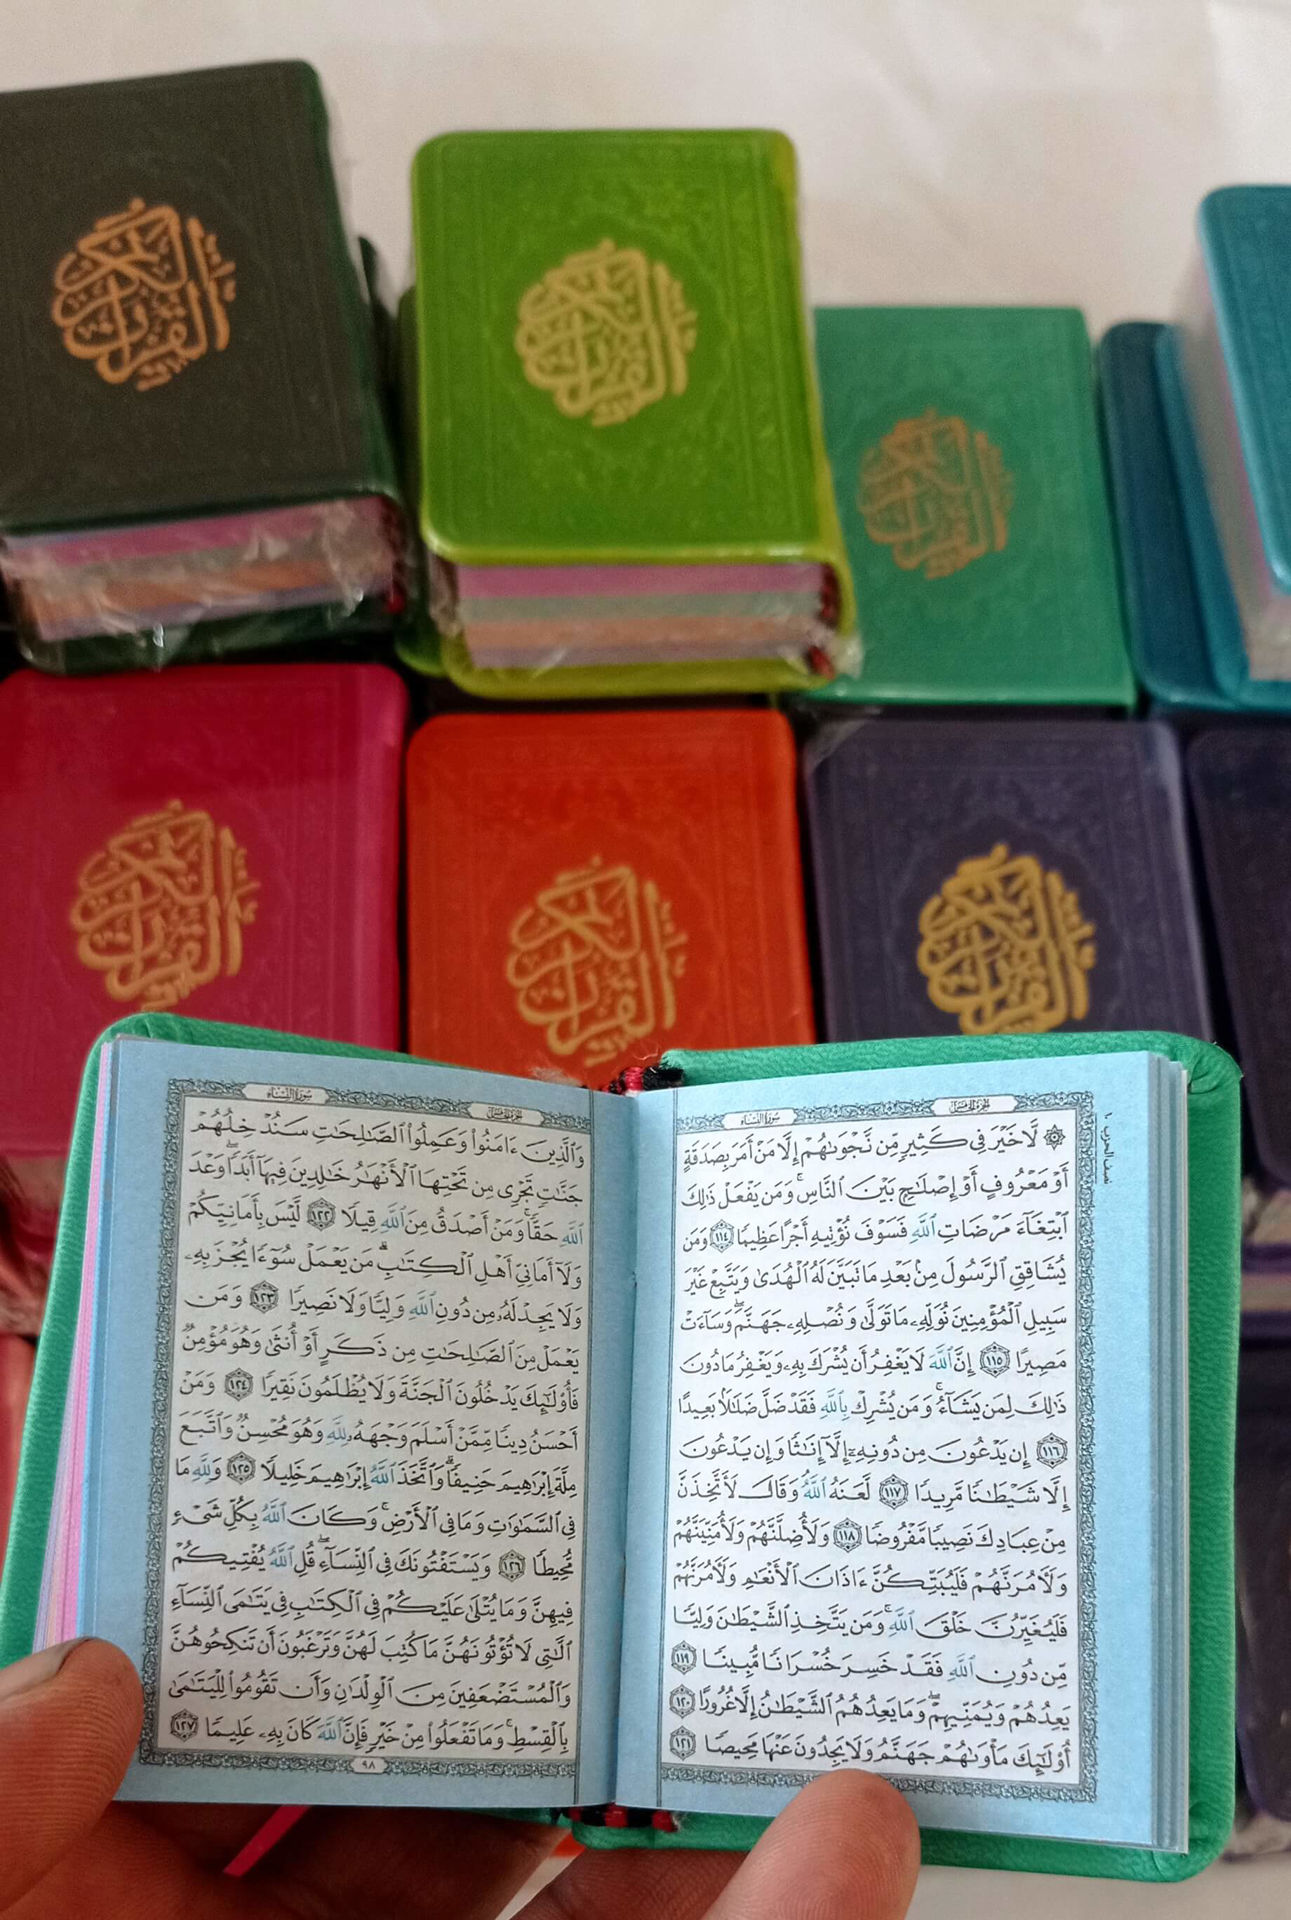 القرآن الكريم
القرآن الكريم
القرآن الكريم
القرآن الكريم
القرآن الكريم
القرآن الكريم
سورة النساء
نصف الحزب ١٠
۞ لَّا خَيْرَ فِى كَثِيرٍ مِّن نَّجْوَىٰهُمْ إِلَّا مَنْ أَمَرَ بِصَدَقَةٍ
أَوْ مَعْرُوفٍ أَوْ إِصْلَـٰحٍۭ بَيْنَ ٱلنَّاسِ ۚ وَمَن يَفْعَلْ ذَٰلِكَ
ٱبْتِغَآءَ مَرْضَاتِ ٱللَّهِ فَسَوْفَ نُؤْتِيهِ أَجْرًا عَظِيمًا ١١٤ وَمَن
يُشَاقِقِ ٱلرَّسُولَ مِنۢ بَعْدِ مَا تَبَيَّنَ لَهُ ٱلْهُدَىٰ وَيَتَّبِعْ غَيْرَ
سَبِيلِ ٱلْمُؤْمِنِينَ نُوَلِّهِۦ مَا تَوَلَّىٰ وَنُصْلِهِۦ جَهَنَّمَ ۖ وَسَآءَتْ
مَصِيرًا ١١٥ إِنَّ ٱللَّهَ لَا يَغْفِرُ أَن يُشْرَكَ بِهِۦ وَيَغْفِرُ مَا دُونَ
ذَٰلِكَ لِمَن يَشَآءُ ۚ وَمَن يُشْرِكْ بِٱللَّهِ فَقَدْ ضَلَّ ضَلَـٰلًۢا بَعِيدًا
١١٦ إِن يَدْعُونَ مِن دُونِهِۦٓ إِلَّآ إِنَـٰثًا وَإِن يَدْعُونَ
إِلَّا شَيْطَـٰنًا مَّرِيدًا ١١٧ لَّعَنَهُ ٱللَّهُ ۘ وَقَالَ لَأَتَّخِذَنَّ
مِنْ عِبَادِكَ نَصِيبًا مَّفْرُوضًا ١١٨ وَلَأُضِلَّنَّهُمْ وَلَأُمَنِّيَنَّهُمْ
وَلَـَٔامُرَنَّهُمْ فَلَيُبَتِّكُنَّ ءَاذَانَ ٱلْأَنْعَـٰمِ وَلَـَٔامُرَنَّهُمْ
فَلَيُغَيِّرُنَّ خَلْقَ ٱللَّهِ ۚ وَمَن يَتَّخِذِ ٱلشَّيْطَـٰنَ وَلِيًّا
مِّن دُونِ ٱللَّهِ فَقَدْ خَسِرَ خُسْرَانًا مُّبِينًا ١١٩
يَعِدُهُمْ وَيُمَنِّيهِمْ ۖ وَمَا يَعِدُهُمُ ٱلشَّيْطَـٰنُ إِلَّا غُرُورًا ١٢٠
أُو۟لَـٰٓئِكَ مَأْوَىٰهُمْ جَهَنَّمُ وَلَا يَجِدُونَ عَنْهَا مَحِيصًا ١٢١
سورة النساء
وَٱلَّذِينَ ءَامَنُوا۟ وَعَمِلُوا۟ ٱلصَّـٰلِحَـٰتِ سَنُدْخِلُهُمْ
جَنَّـٰتٍ تَجْرِى مِن تَحْتِهَا ٱلْأَنْهَـٰرُ خَـٰلِدِينَ فِيهَآ أَبَدًا ۖ وَعْدَ
ٱللَّهِ حَقًّا ۚ وَمَنْ أَصْدَقُ مِنَ ٱللَّهِ قِيلًا ١٢٢ لَّيْسَ بِأَمَانِيِّكُمْ
وَلَآ أَمَانِىِّ أَهْلِ ٱلْكِتَـٰبِ ۗ مَن يَعْمَلْ سُوٓءًا يُجْزَ بِهِۦ
وَلَا يَجِدْ لَهُۥ مِن دُونِ ٱللَّهِ وَلِيًّا وَلَا نَصِيرًا ١٢٣ وَمَن
يَعْمَلْ مِنَ ٱلصَّـٰلِحَـٰتِ مِن ذَكَرٍ أَوْ أُنثَىٰ وَهُوَ مُؤْمِنٌ
فَأُو۟لَـٰٓئِكَ يَدْخُلُونَ ٱلْجَنَّةَ وَلَا يُظْلَمُونَ نَقِيرًا ١٢٤ وَمَنْ
أَحْسَنُ دِينًا مِّمَّنْ أَسْلَمَ وَجْهَهُۥ لِلَّهِ وَهُوَ مُحْسِنٌ وَٱتَّبَعَ
مِلَّةَ إِبْرَٰهِيمَ حَنِيفًا ۗ وَٱتَّخَذَ ٱللَّهُ إِبْرَٰهِيمَ خَلِيلًا ١٢٥ وَلِلَّهِ مَا
فِى ٱلسَّمَـٰوَٰتِ وَمَا فِى ٱلْأَرْضِ ۚ وَكَانَ ٱللَّهُ بِكُلِّ شَىْءٍ
مُّحِيطًا ١٢٦ وَيَسْتَفْتُونَكَ فِى ٱلنِّسَآءِ ۖ قُلِ ٱللَّهُ يُفْتِيكُمْ
فِيهِنَّ وَمَا يُتْلَىٰ عَلَيْكُمْ فِى ٱلْكِتَـٰبِ فِى يَتَـٰمَى ٱلنِّسَآءِ
ٱلَّـٰتِى لَا تُؤْتُونَهُنَّ مَا كُتِبَ لَهُنَّ وَتَرْغَبُونَ أَن تَنكِحُوهُنَّ
وَٱلْمُسْتَضْعَفِينَ مِنَ ٱلْوِلْدَٰنِ وَأَن تَقُومُوا۟ لِلْيَتَـٰمَىٰ
بِٱلْقِسْطِ ۚ وَمَا تَفْعَلُوا۟ مِنْ خَيْرٍ فَإِنَّ ٱللَّهَ كَانَ بِهِۦ عَلِيمًا ١٢٧
٩٨